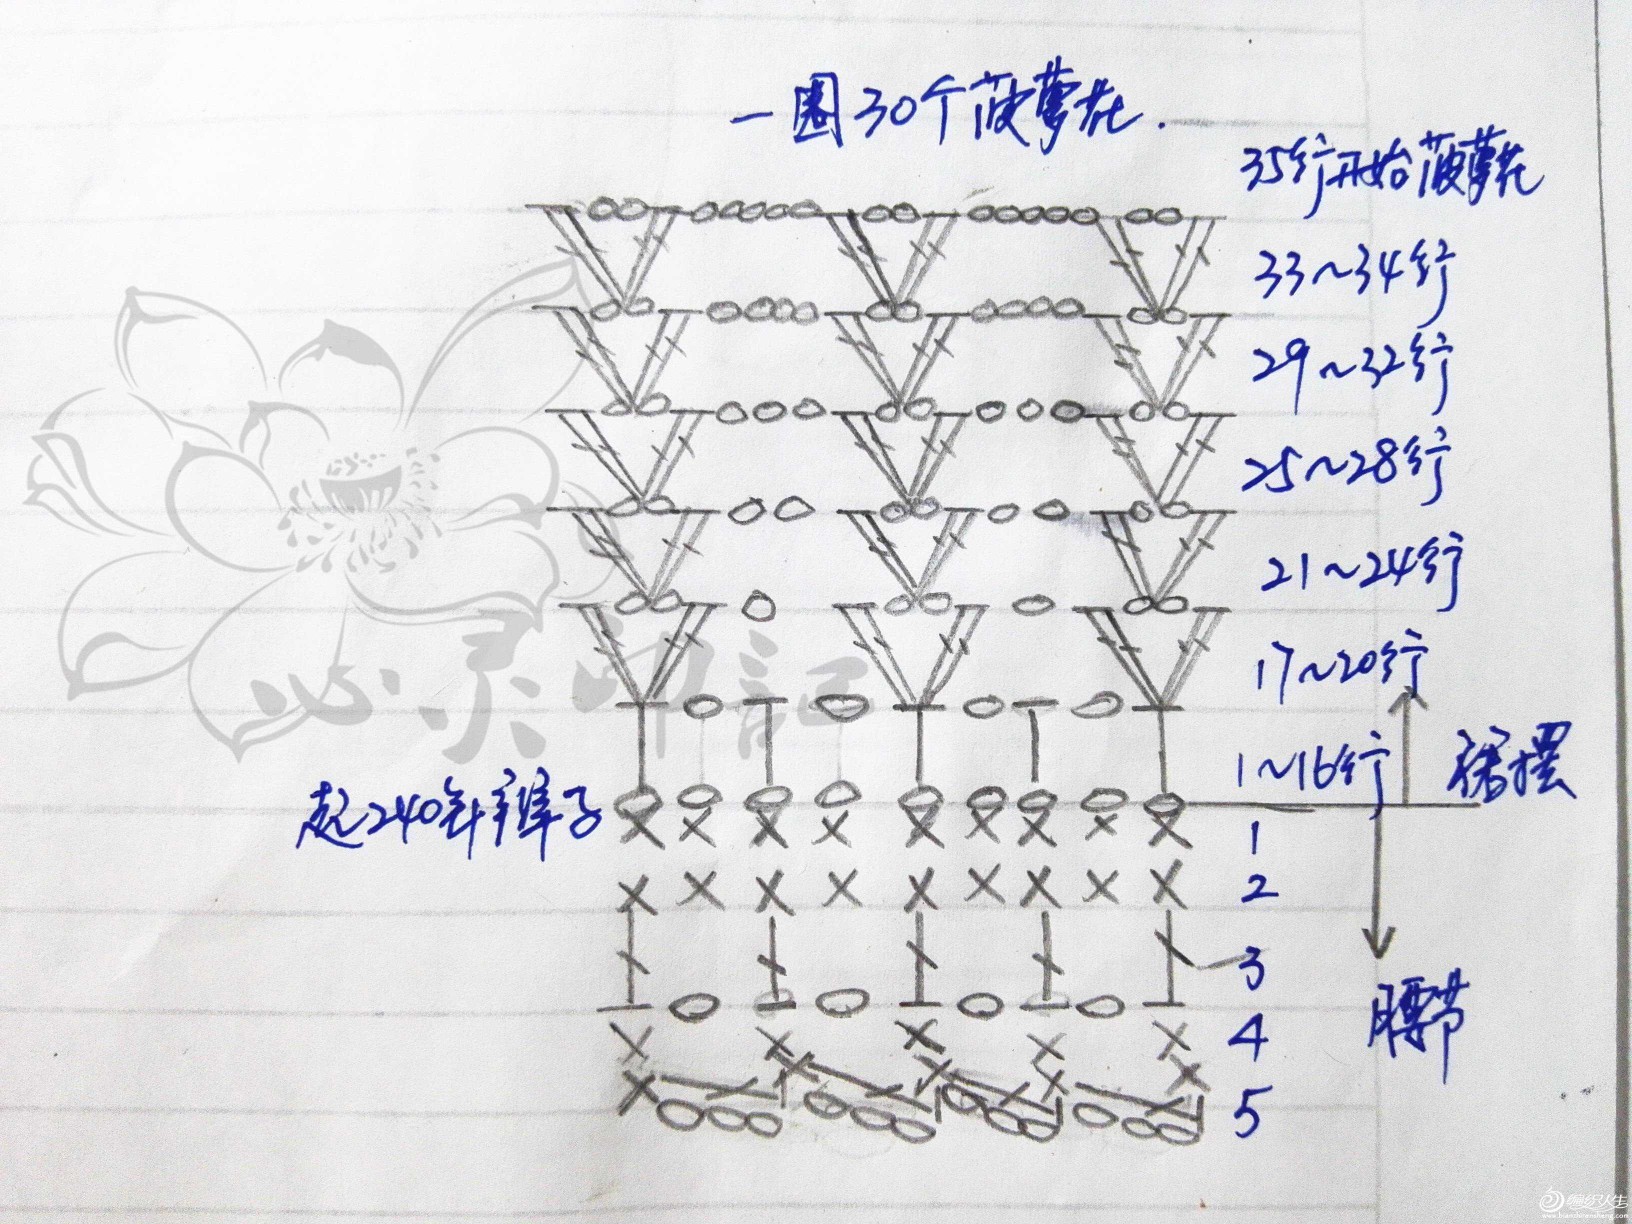 一圈30个菠萝花.
35行开始菠萝花
33~34行
29~32行
25~28行
21~24行
17~20行
1~16行
裙摆
起240针辫子
1
2
3
4
腰节
5
心灵印記
编织人生